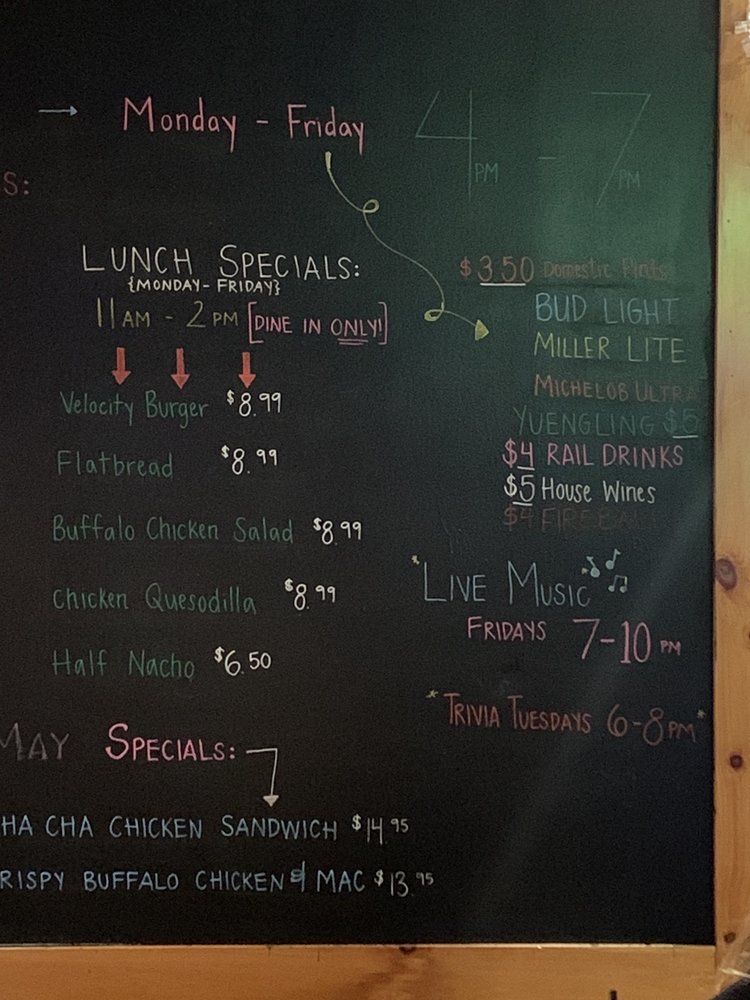 → Monday - Friday 4PM - 7PM
S:
LUNCH SPECIALS:
{MONDAY-FRIDAY}
11AM - 2PM [DINE IN ONLY!]
Velocity Burger $8.99
Flatbread $8.99
Buffalo Chicken Salad $8.99
Chicken Quesodilla $8.99
Half Nacho $6.50
$3.50 Domestic Pints
BUD LIGHT
MILLER LITE
MICHELOB ULTRA
YUENGLING $5
$4 RAIL DRINKS
$5 House Wines
$4 FIREBALL
*LIVE MUSIC*
FRIDAYS 7-10PM
*TRIVIA TUESDAYS 6-8PM*
MAY SPECIALS:
HA CHA CHICKEN SANDWICH $14.95
RISPY BUFFALO CHICKEN & MAC $13.95